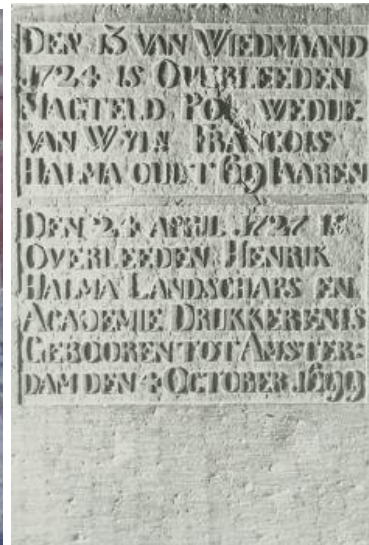 DEN 13 VAN WIEDMAAND
1724 IS OVERLEEDEN
MAGTELD POL WEDUE
VAN WYLN FRANCOIS
HALMA OUDT 69 IAAREN
DEN 24 APRIL 1727 IS
OVERLEEDEN HENRIK
HALMA LANDSCHAPS EN
ACADEMIE DRUKKER EN IS
GEBOOREN TOT AMSTER=
DAM DEN 4 OCTOBER 1699